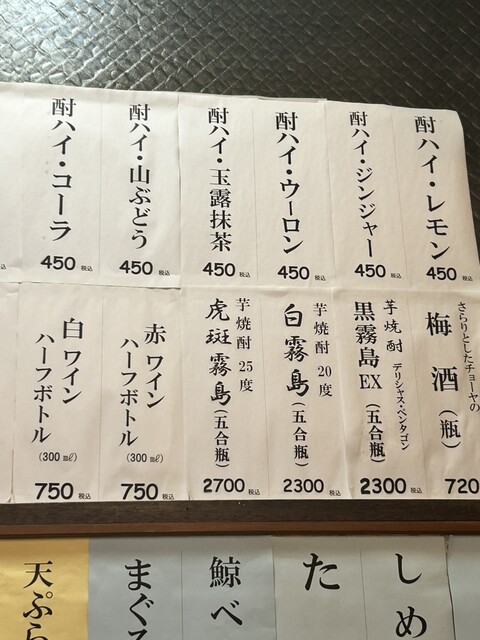 酎ハイ・レモン
450 税込
酎ハイ・ジンジャー
450 税込
酎ハイ・ウーロン
450 税込
酎ハイ・玉露抹茶
450 税込
酎ハイ・山ぶどう
450 税込
酎ハイ・コーラ
450 税込
さらりとしたチョーヤの
梅酒（瓶）
720
芋焼酎 デリシャス・ペンタゴン
黒霧島EX（五合瓶）
2300 税込
芋焼酎 20度
白霧島（五合瓶）
2300 税込
芋焼酎 25度
虎斑霧島（五合瓶）
2700 税込
赤ワイン
ハーフボトル
（300㎖）
750 税込
白ワイン
ハーフボトル
（300㎖）
750 税込
しめ
た
鯨べ
まぐろ
天ぷら